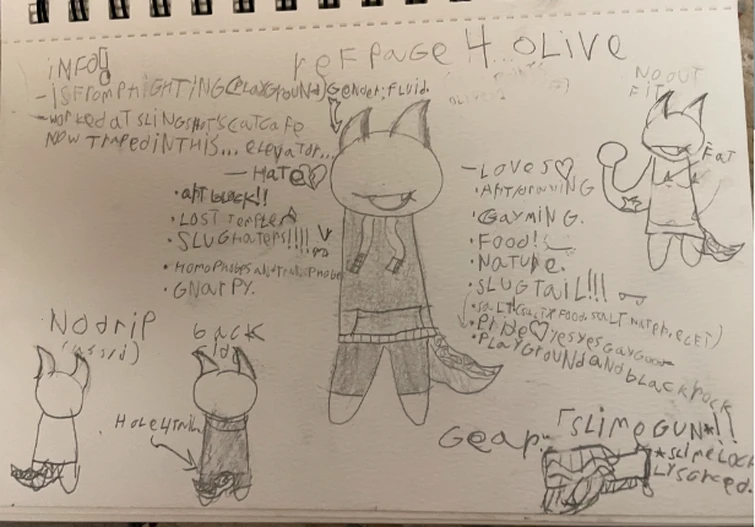 reF PAGE 4 OLiVE
iNFO!
- iS FrOM PHiGHTiNG (PLAYGrOUND) GeNdeT: FLuid.
- WOrKed AT SLiNGSHOT'S CATCAFE
NOW TrAPED iN THiS... eLeVATOr...
- HATe
• ArT bLOCK!!
• LOST TeMPLe
• SLUG HATerS!!!!
• HOMOPHOBES
• GNArPY.
- LOVeS ♡
• ArT/DrAWiNG
• GAYMiNG.
• FOOD!
• NATUre.
• SLUGTAiL!!!
• Pride ♡ YeS YeS GAY GOOD
• PLAYGrOUND AND bLACKrOCK
NO OUT
FiT
FAT
NO driP
bACK
HOLe 4 TAiL
GeAr:
"SLiMe GUN*"!!
*SLiMe LOC